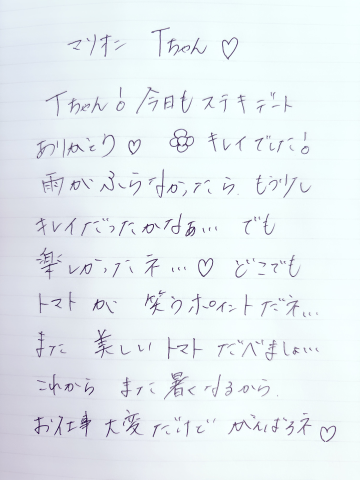 マリオン Tちゃん♡
Tちゃん！今日もステキデート
ありがとう♡ キレイでした！
雨がふらなかったら、もう少し
キレイだったかなぁ… でも
楽しかったネ…♡ どこでも
トマトが 笑うポイントだネ…
また 美しい トマト たべましょ…
これから また暑くなるから、
お仕事 大変だけど がんばろネ♡